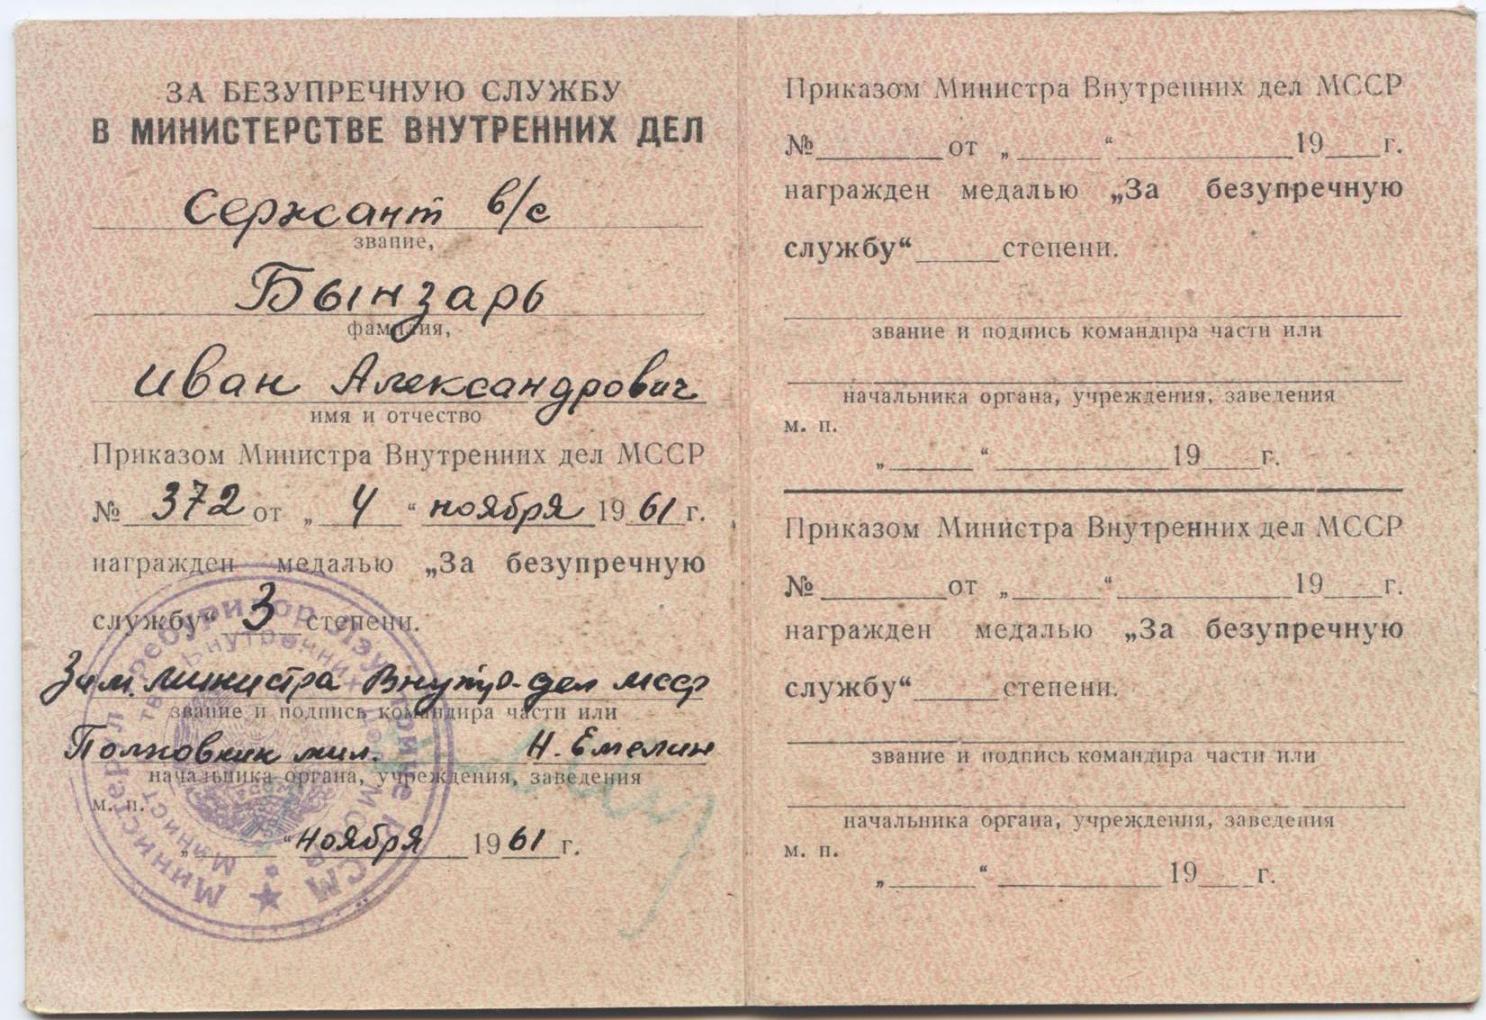 ЗА БЕЗУПРЕЧНУЮ СЛУЖБУ
В МИНИСТЕРСТВЕ ВНУТРЕННИХ ДЕЛ
Сержант в/с
звание,
Бынзарь
фамилия,
Иван Александрович
имя и отчество
Приказом Министра Внутренних дел МССР
№ 372 от „ 4 “ ноября 1961 г.
награжден медалью „За безупречную
службу“ 3 степени.
Зам. министра Внутр. дел МССР
звание и подпись командира части или
Полковник мил. Н. Емелин
начальника органа, учреждения, заведения
м. п.
„ “ ноября 1961 г.
Министерул Требурилор Лэунтриче РССМ
Министерство Внутренних Дел МССР
Приказом Министра Внутренних дел МССР
№ от „ “ 19 г.
награжден медалью „За безупречную
службу“ степени.
звание и подпись командира части или
начальника органа, учреждения, заведения
м. п.
„ “ 19 г.
Приказом Министра Внутренних дел МССР
№ от „ “ 19 г.
награжден медалью „За безупречную
службу“ степени.
звание и подпись командира части или
начальника органа, учреждения, заведения
м. п.
„ “ 19 г.